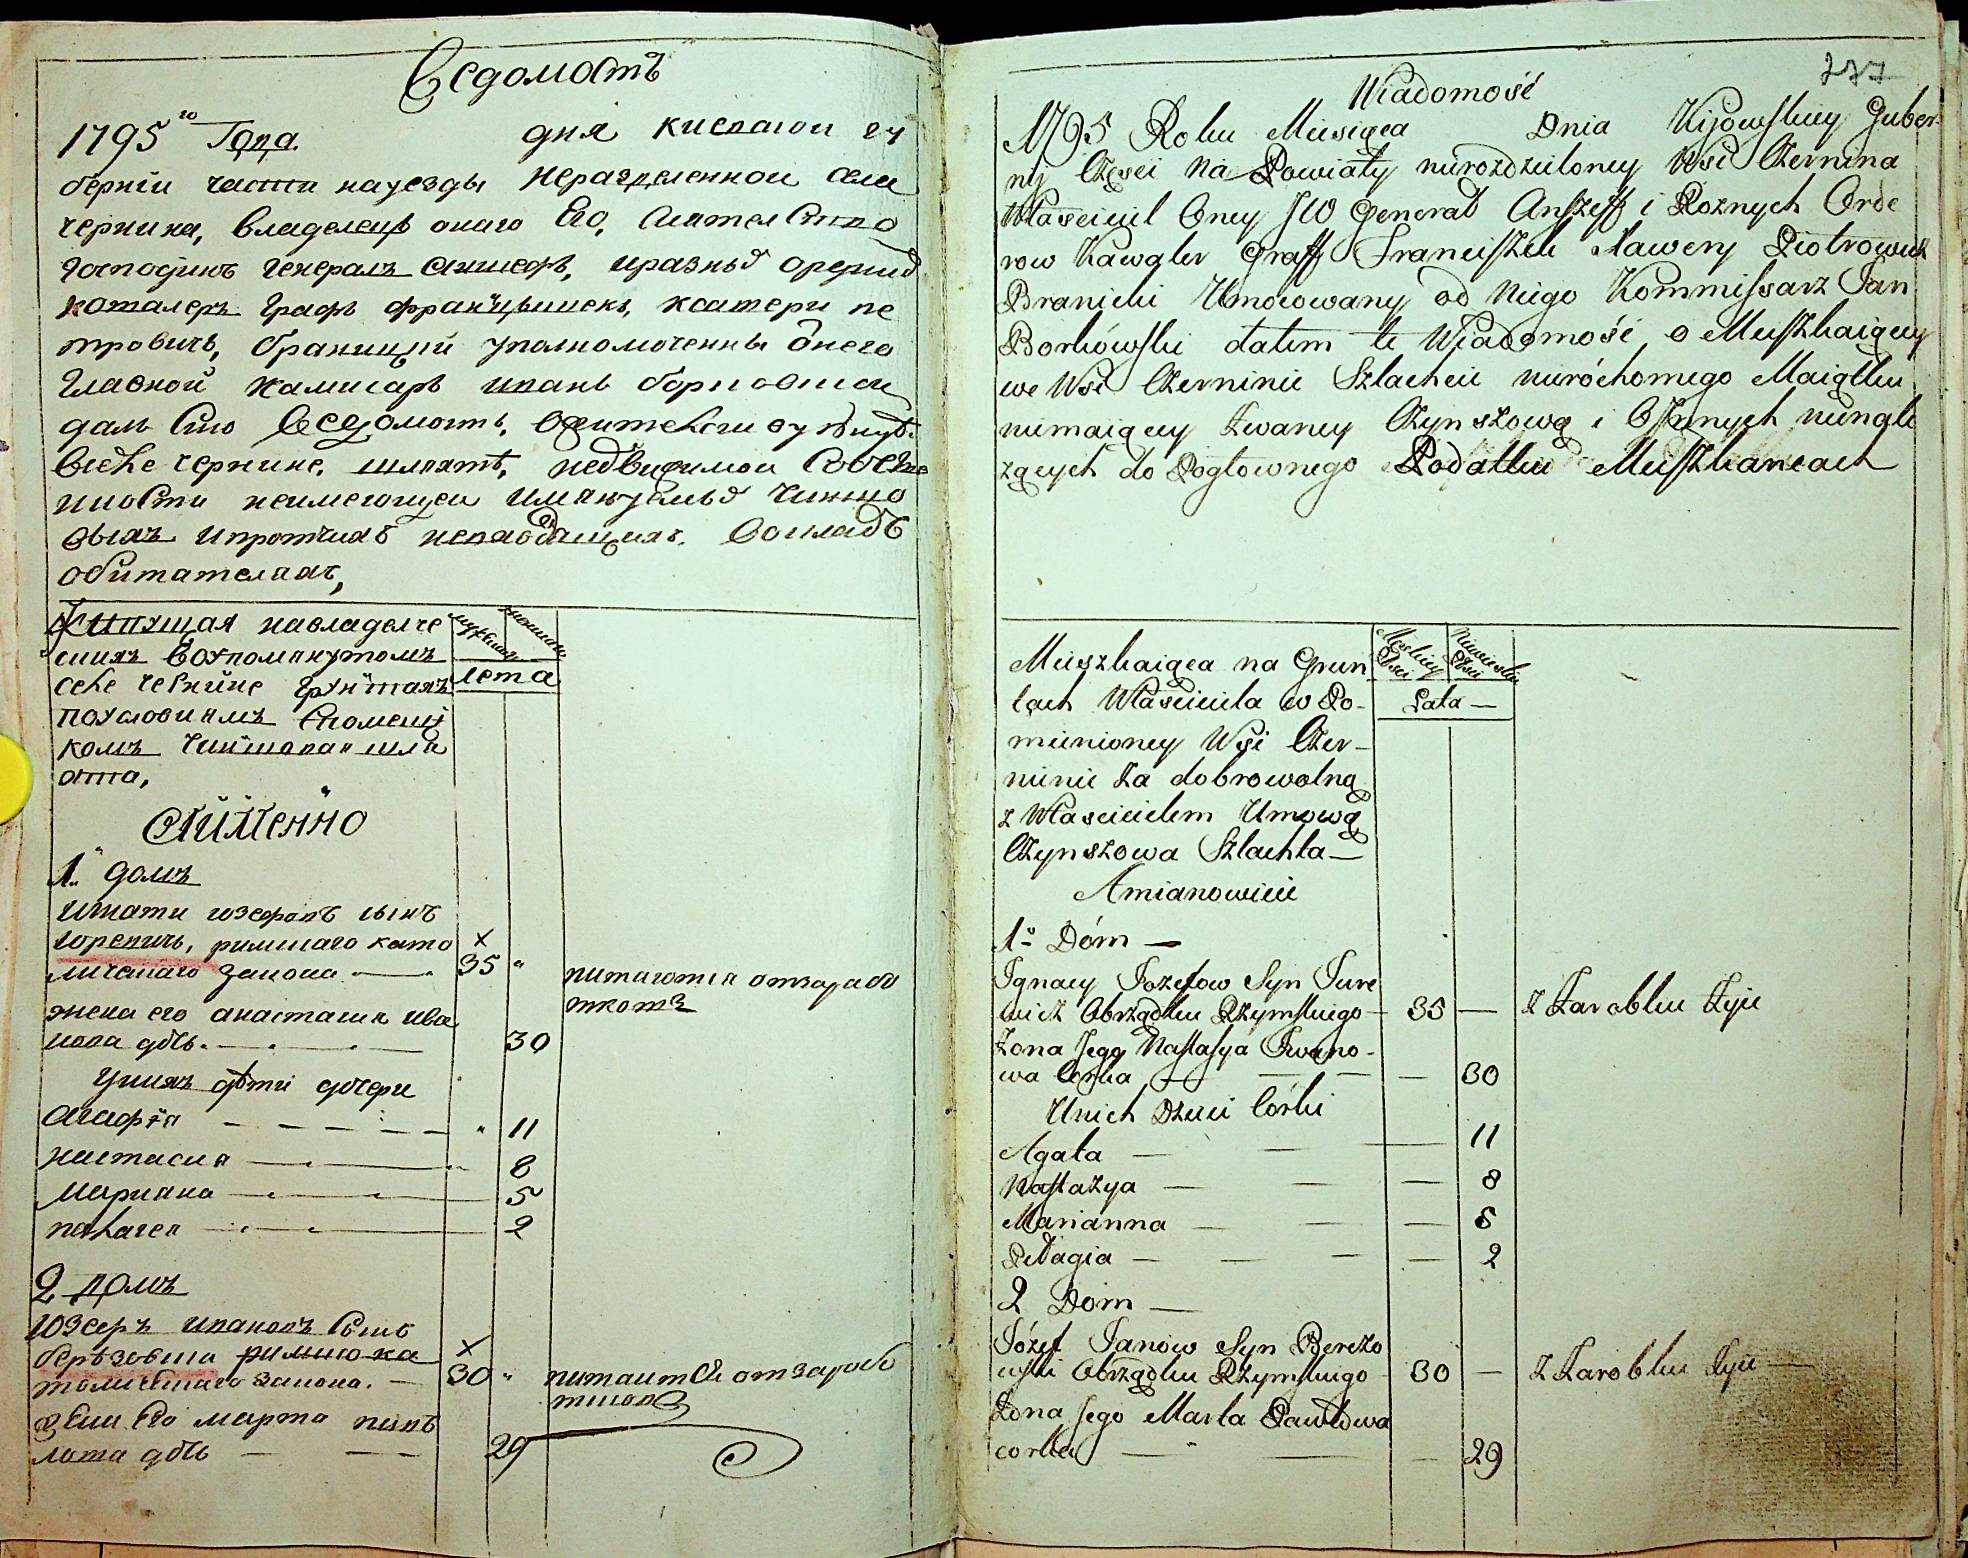 Ведомость
1795го Года дня киевской гу
берніи части науезды неразделенной села
чернина, владелецъ онаго Его, Сиятелство
господинъ генералъ аншефъ, иразныхъ орденовъ
каталеръ графъ францышекъ, ксавери пе
тровичъ, браницкій уполномоченны Онего
главной камисаръ иванъ борковски
далъ Сию Ведомость, обжителствующей
вселе чернине, шляхте, недвижимой Собстве
нности неимеющей
овыхъ ипротчихъ непходящихъ, Вокладъ
обитателахъ,
Живущая навладелче
скихъ Воупомянутомъ
селе чернине грунтахъ
поусловиямъ Спомещи
комъ Чиншовая шля
охта,
Аименно
мужеска
женска
лета
1й домъ
игнати юзефовъ сынъ
юревичъ, римскаго като
личскаго закона — 35 "
питаются отзарабо
тковъ
жена его анастасия ива
нова дочь — 30
унихъ дѣти дочери
Агафия — " 11
настасия — 8
Марияна — 5
пелагея — 2
2 домъ
юзефъ ивановъ Сынъ
берѣзовски римско ка
толическаго закона. — 30 "
питаится отзарабо
тковъ
жена Его марта павъ
лова дочь — 29
277
Wiadomość
1795 Roku Miesiąca Dnia Kijowskiey Guber
nij Częsci na Powiaty nierozdzieloney Wsi Czernina
Własciciel Oney JW Generał Anszeff i Roznych Orde
row Kawaler Graff Franciszek Xawery Piotrowicz
Branicki Umocowany od Niego Kommissarz Jan
Borkówski dałem tę Wiadomość o Mieszkaiącey
we Wsi Czerninie Szlachcie nieróchomego Maiątku
niemaiącey zwaney Czynszową i Osunych nienale
zących do Pogłownego Podatku Mieszkancach
Mieszkaiąca na Grun
tach Własciciela w Po-
mienioney Wsi Czer-
ninie za dobrowolną
z Właścicielem Umową
Czynszowa Szlachta —
Męskiey Płci
Niewieskiey Płci
Lata —
Amianowicie
1o Dóm —
Ignacy Jozefow Syn Jure
wicz Obrządku Rzymskiego — 35 — Z Zarobku Żyie
Zona Jego Nastasya Iwano-
wa Corka — — 30
Unich Dzieci Córki
Agata — — — 11
Nastazya — — — 8
Marianna — — — 5
Pelagia — — — 2
2 Dom —
Józef Janów Syn Berezo
wski Obrządku Rzymskiego 30 — Z Zarobku Żyie —
Zona Jego Marta Pawłowa
corka — — — 29